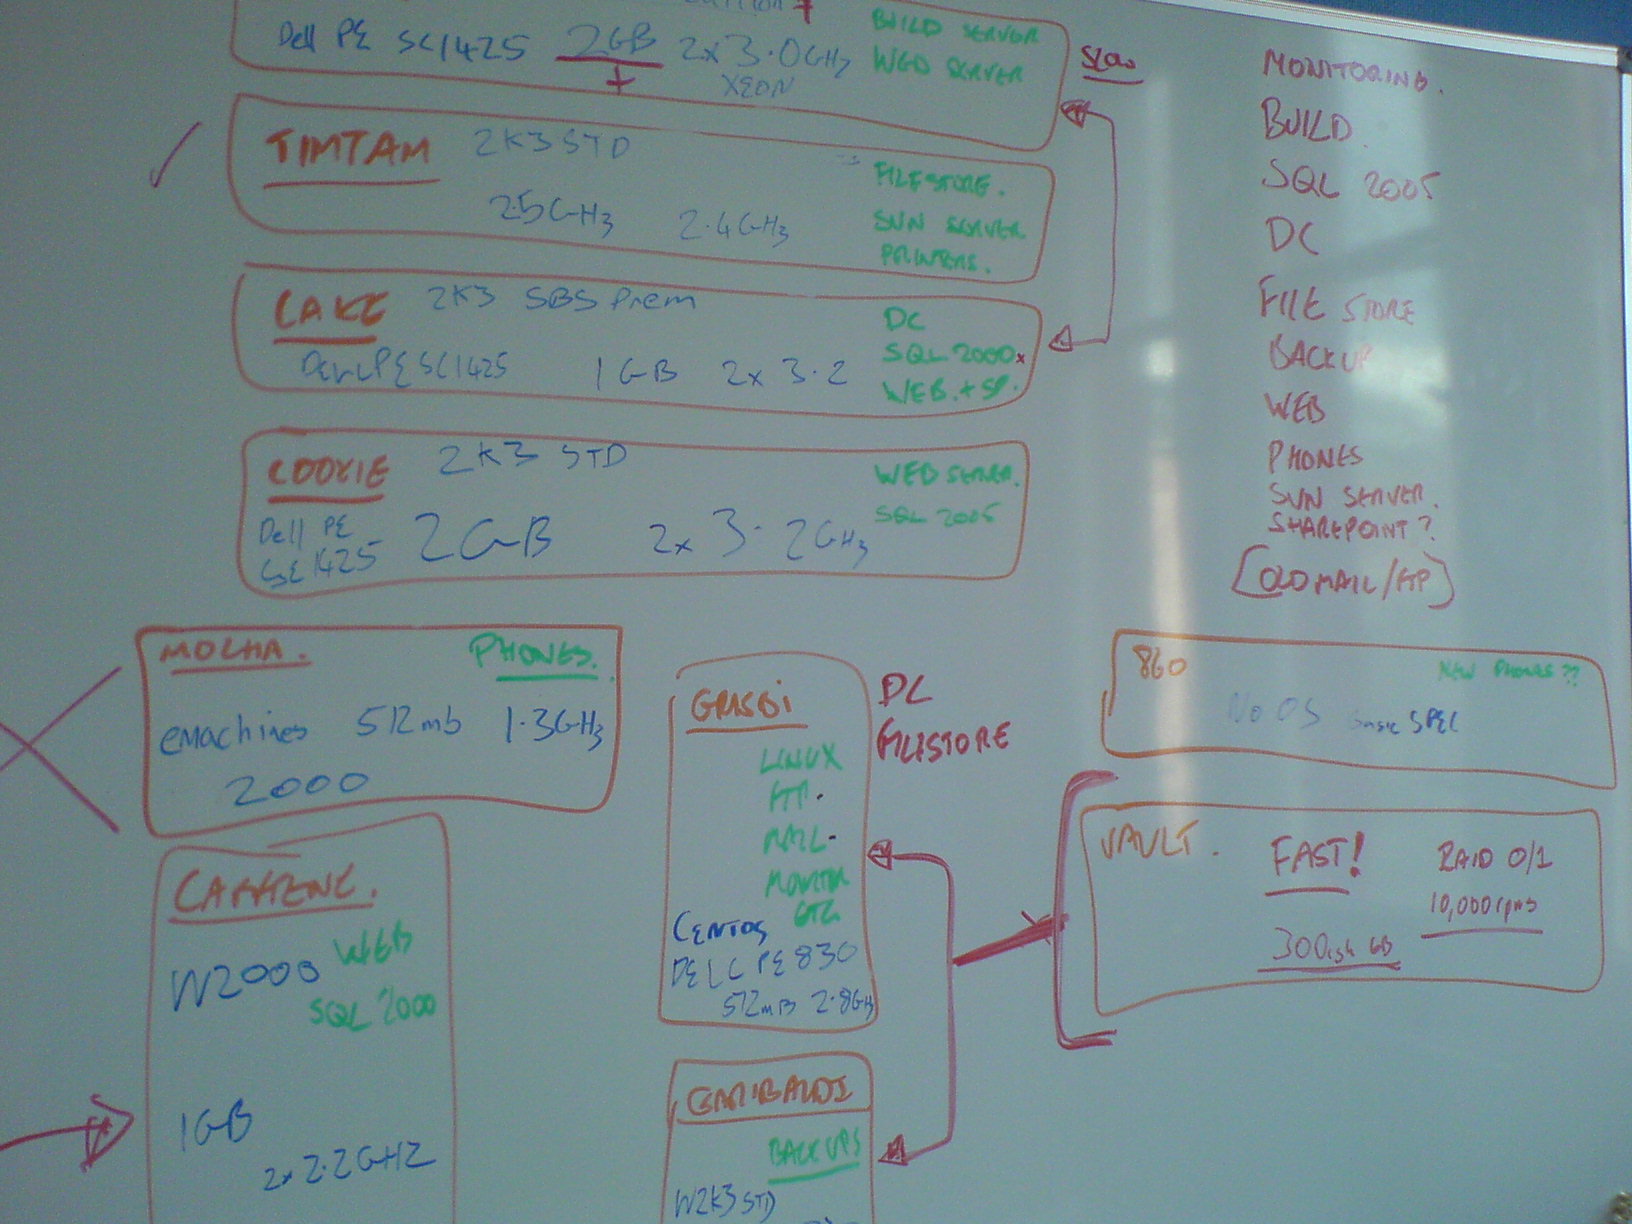 Dell PE SC1425 2GB 2x 3.0GHz
XEON
BUILD SERVER
WEB SERVER
MONITORING.
BUILD
SQL 2005
DC
FILE STORE
BACKUP
WEB
PHONES
SVN SERVER.
SHAREPOINT?
[OLD MAIL/FTP]
TIMTAM 2K3 STD
2.5GHz 2.4GHz
FILESTORE.
SVN SERVER
PRINTERS.
CAKE 2K3 SBS Prem
Dell PE SC1425 1GB 2x 3.2
DC
SQL 2000x
WEB.+SP.
COOKIE 2K3 STD
Dell PE
SC1425 2GB 2x 3.2GHz
WEB SERVER.
SQL 2005
MOCHA. PHONES.
eMachines 512mb 1.3GHz
2000
CAFFEINE.
W2000 WEB
SQL 2000
1GB
2x2.2GHZ
LINUX
FTP.
MAIL.
MONITOR
ETC
CENTOS
DELL PE 830
512MB 2.8GHz
DC
FILESTORE
GARIBALDI
BACKUPS
W2K3 STD
860 NEW PHONES??
NO OS Basic SPEC
VAULT. FAST! RAID 0/1
10,000rpms
300ish GB